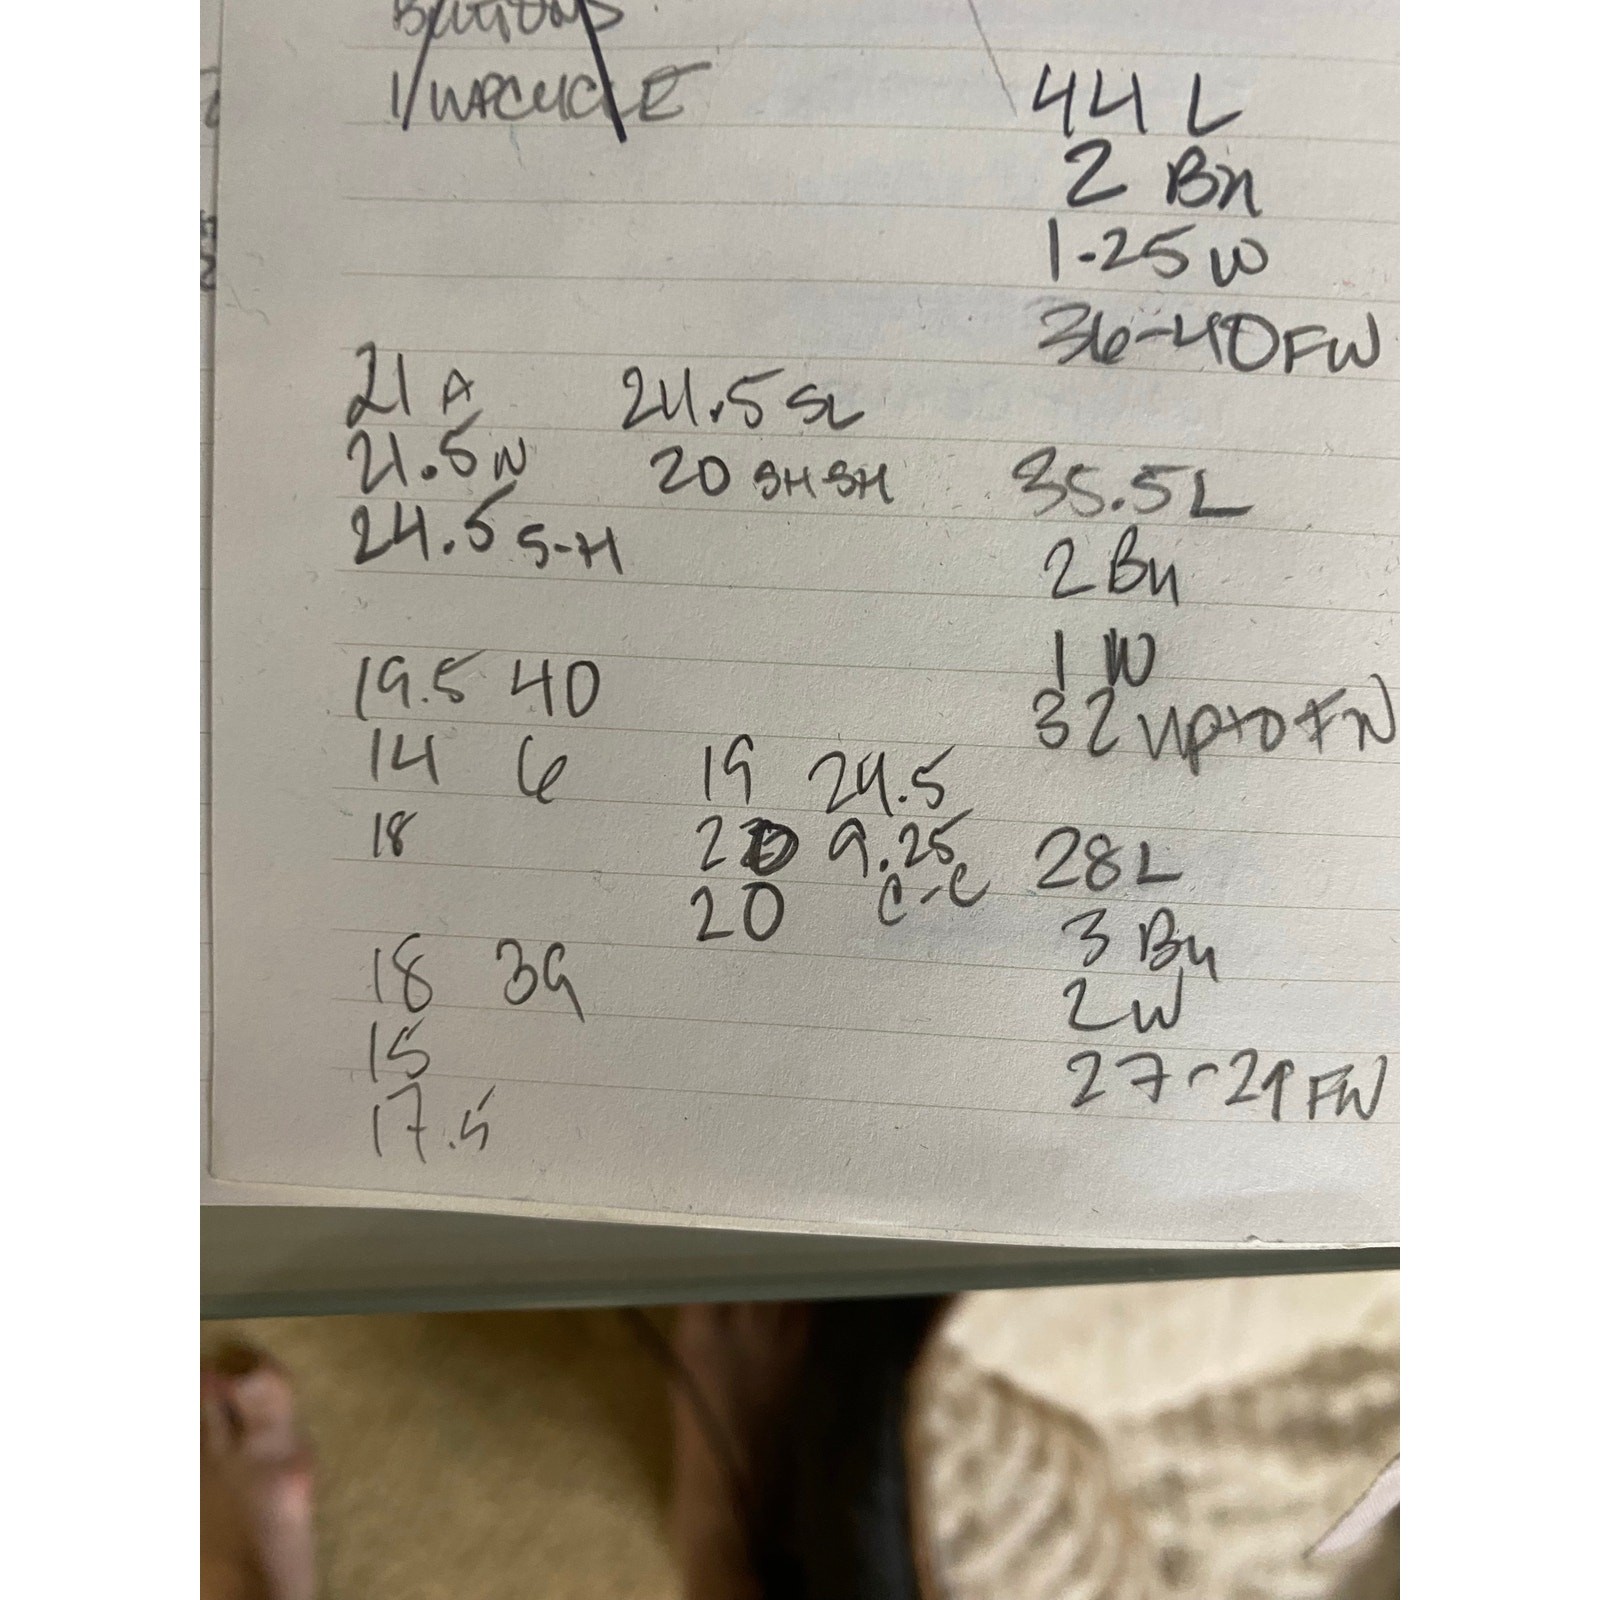 BUTTONS
44 L
2 Bu
1.25 W
36-40 FW
21 A 24.5 SL
21.5 W 20 SH SH
24.5 S-H
35.5 L
2 Bu
1 W
32 UPTO FW
19.5 40
14 6
18
19 24.5
20 9.25
20 C-C
28 L
3 Bu
2 W
27-29 FW
18 39
15
17.5